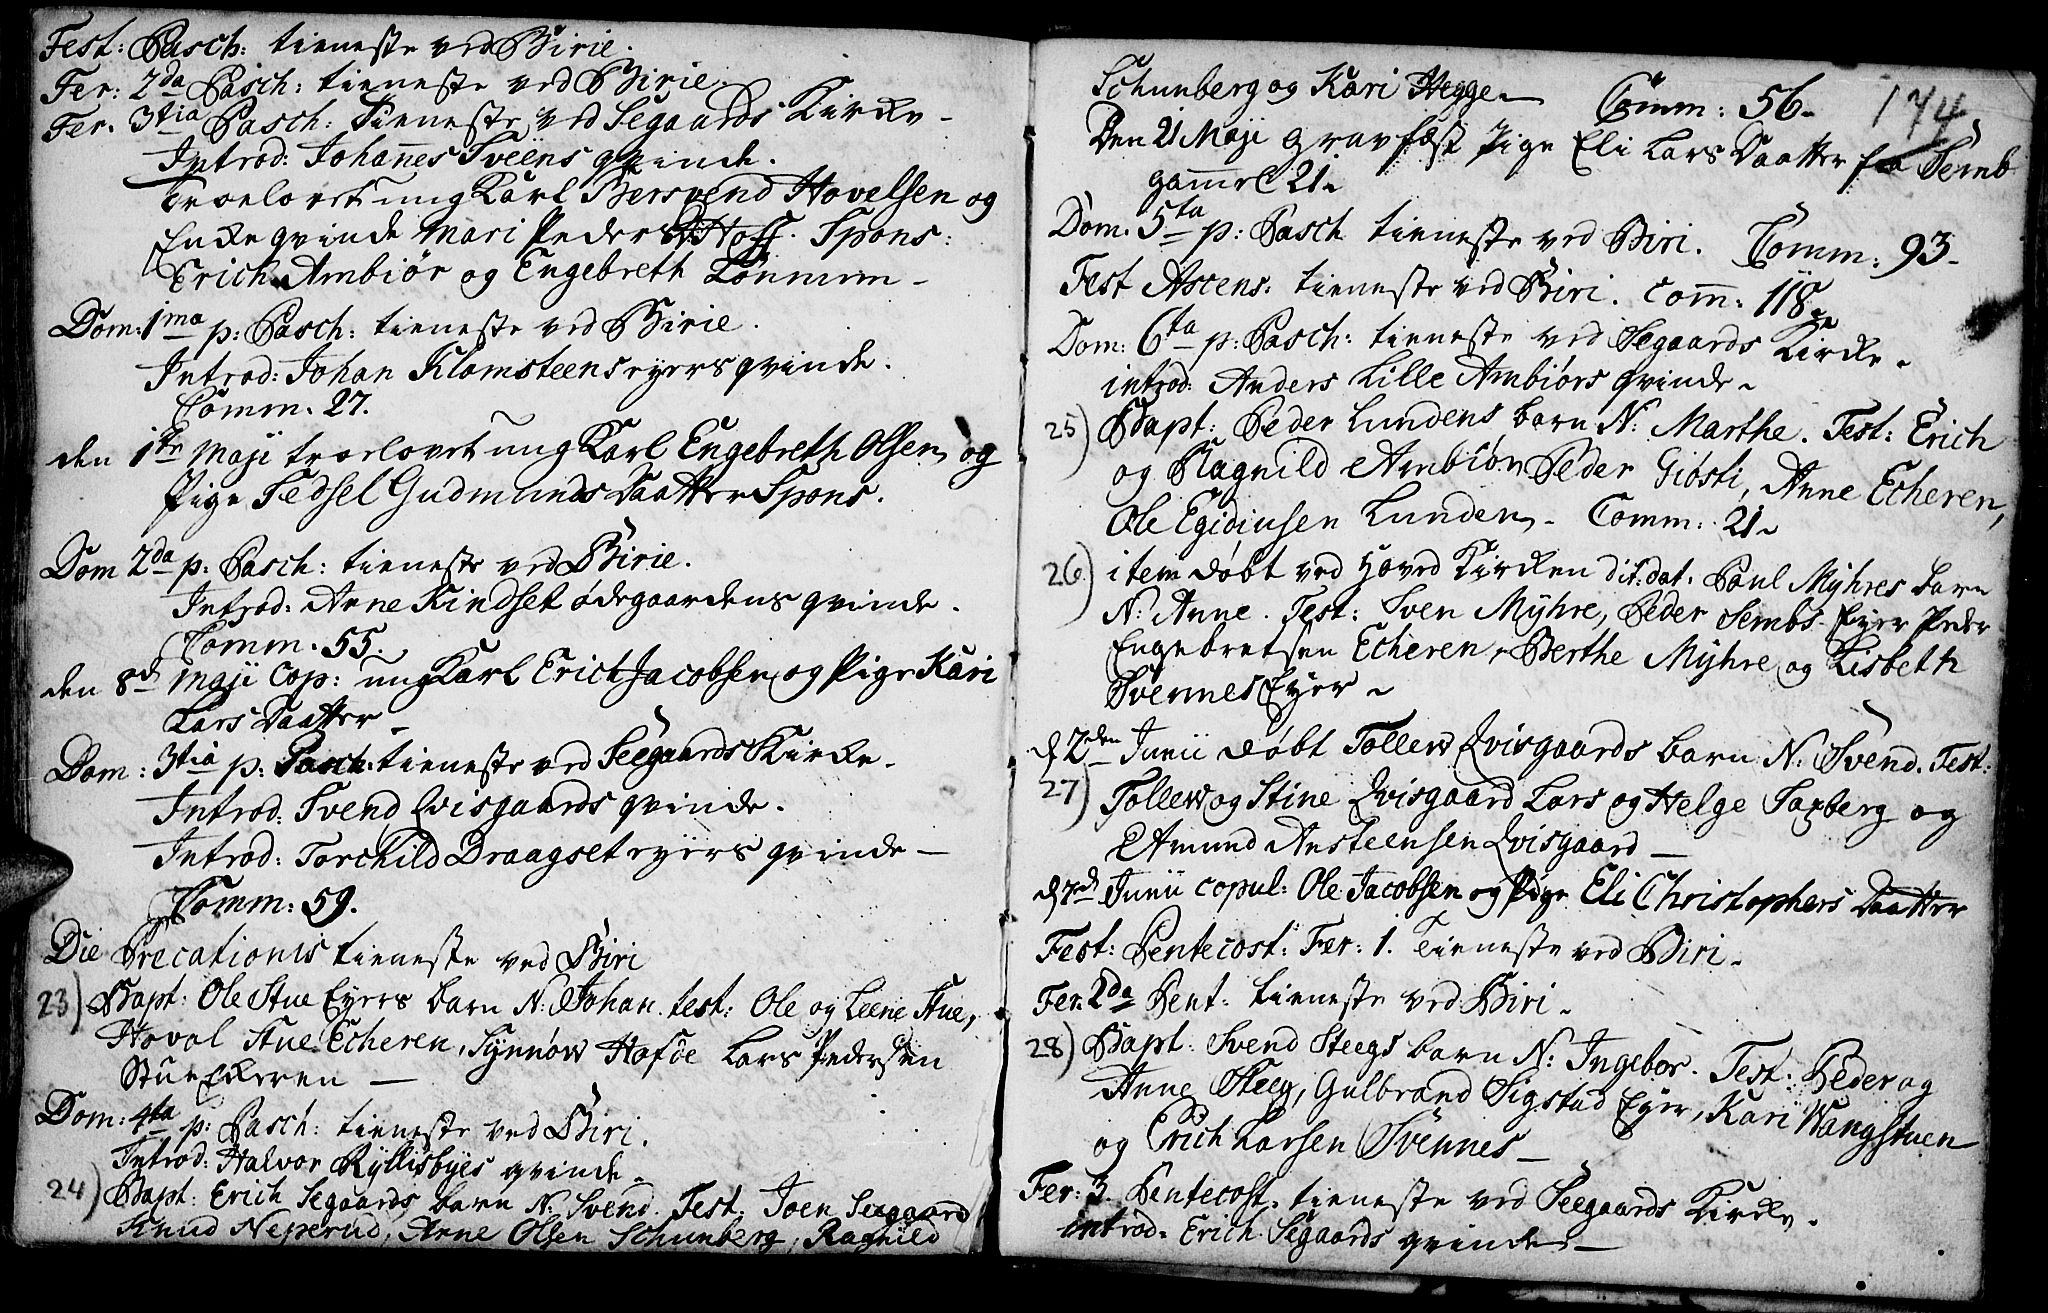 Fest: Pasch: tieneste ved Birie.
Fer: 2da Pasch: tieneste ved Birie.
Fer. 3tia Pasch: Tieneste ved Segaards Kircke -
Introd: Johannes Sveens qvinde.
Troelovet ung Karl Bersvend Hovelsen og
Enckeqvinde Mari Peders Hoff. Spons:
Erich Ambiör og Engebreth Lönnum -
Dom: 1ma p: Pasch: tieneste ved Birie.
Introd: Johan Klomsteens eyers qvinde.
Comm. 27.
den 1te Maji troelovet ung Karl Engebreth Olsen og
Pige Sedsel Gudmunds Daatter Spons.
Dom 2da p: Pasch: tieneste ved Birie.
Introd: Arne Kindset ödegaardens qvinde.
Comm. 55.
den 8de Maji Cop: ung Karl Erich Jacobsen og Pige Kari
Lars Daatter -
Dom: 3tia p: Pasch: tieneste ved Seegaards Kircke -
Introd: Svend Qvisgaards qvinde.
Introd: Torchild Draagset eyers qvinde -
Comm: 59.
Die Precationis tieneste ved Biri
23) Bapt: Ole Stue Eyers barn N: Johan. test: Ole og Leene Stue,
Hovol Stue Echeren, Synnöw Hofde Lars Pedersen
Stue Eckeren -
Dom: 4ta p: Pasch: tieneste ved Biri.
Introd: Halvor Ryllisbyes qvinde -
24) Bapt: Erich Segaards barn N: Svend. Test: Joen Seegaard
Knud Neperud, Arne Olsen Schunberg, Ragnild
Schunberg og Kari Hegge - Comm: 56. 174
Den 21 Maji gravfæst Pige Eli Lars Daatter fra Semb
gammel 21.
Dom. 5ta p: Pasch tieneste ved Biri. Comm: 93 -
Fest Ascens: tieneste ved Biri. Comm: 118.
Dom: 6ta p: Pasch: tieneste ved Segaards Kircke -
introd: Anders Lille Ambiörs qvinde -
25) Bapt: Peder Lundens barn N: Marthe. Test: Erich
og Ragnild Ambiör Peder Giösti, Anne Echeren,
Ole Egidiusen Lunden - Comm: 21 -
26) item döbt ved Hoved Kircken dit: dat. Poul Myhres barn
N: Anne. Test: Sven Myhre, Peder Sembs Eyer Peder
Engebretsen Echeren, Berthe Myhre og Lisbeth
Svennes Eyer -
d 2den Junii döbt Tollew Qvisgaards barn N: Svend. Test:
27) Tollew og Stine Qvisgaard Lars og Helge Saxberg og
Amund Ansteensen Qvisgaard -
d 7de Junii copul: Ole Jacobsen og Pige Eli Christophers Daatter
Fest: Pentecost: Fer: 1. Tieneste ved Biri -
Fer. 2da Pent: tieneste ved Biri -
28) Bapt: Svend Steegs barn N: Ingebor. Test: Peder og
Anne Steeg, Gulbrand Sigstad Eyer, Kari Wangstuen
og Erich Larsen Svennes -
Fer: 3. Pentecost. tieneste ved Seegaards Kircke -
introd. Erich Segaards qvinde -